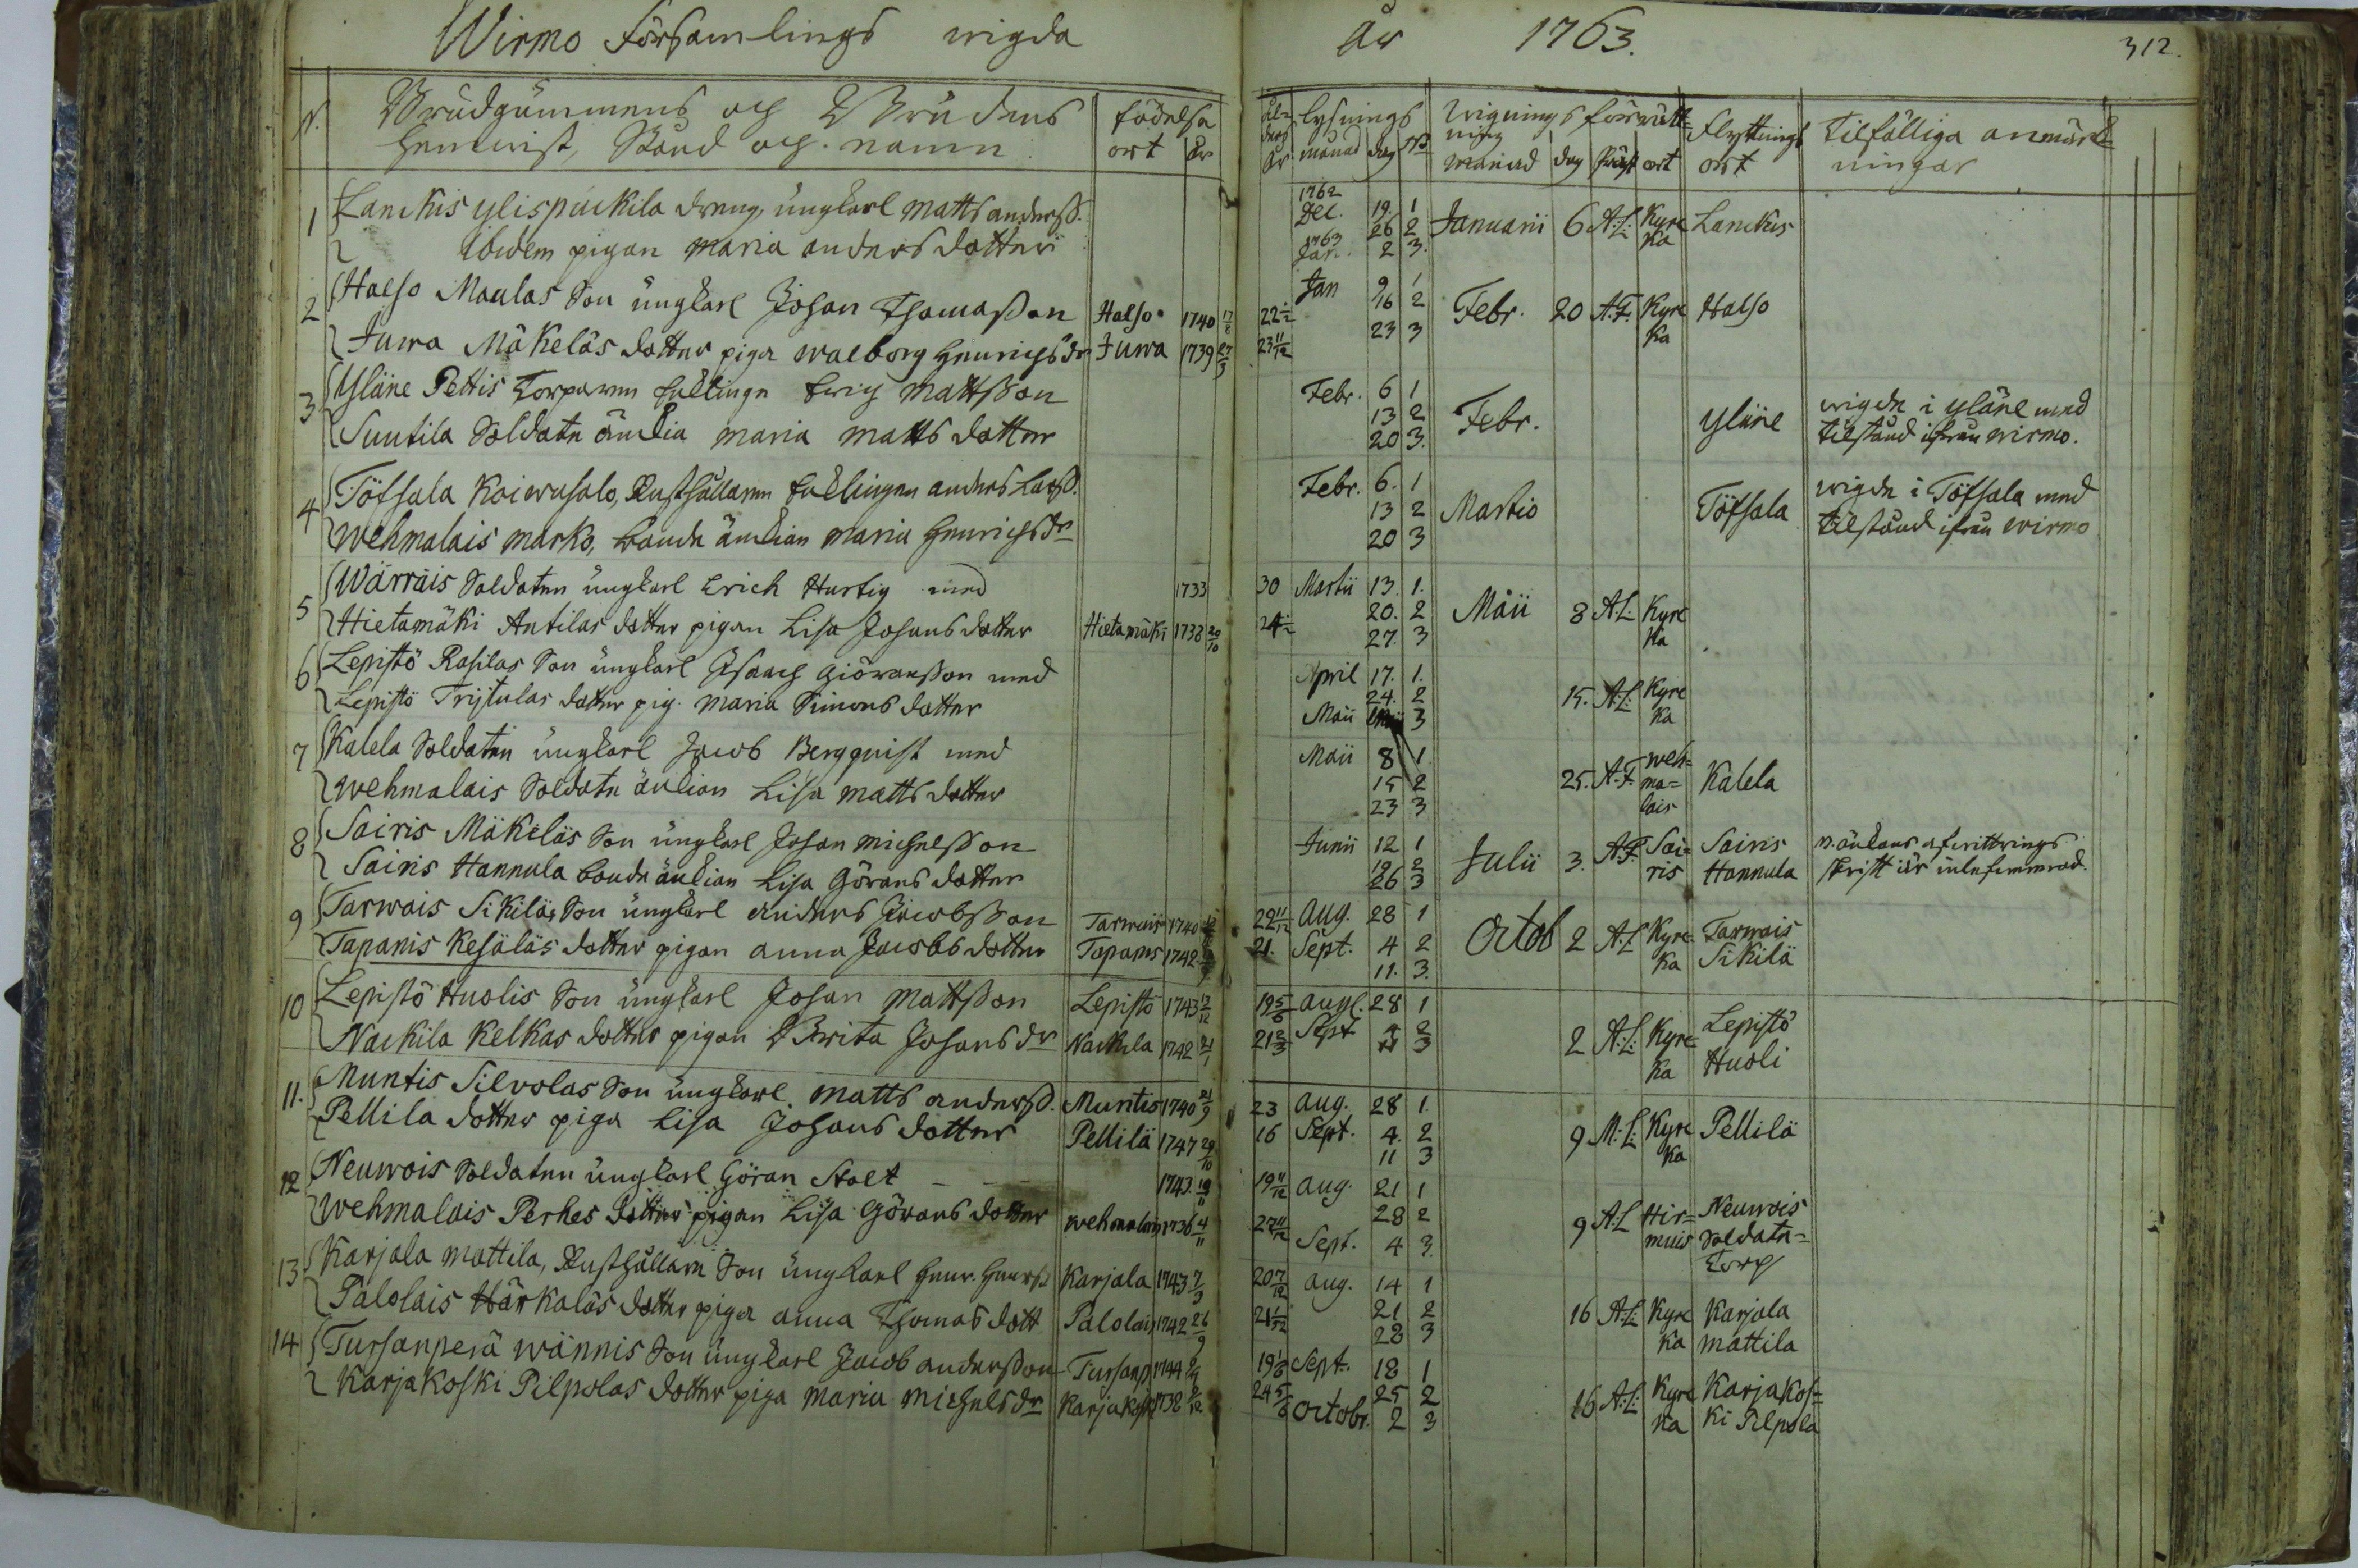 Wirmo Församlings wigda
År 1763.
312.
N. Brudgummens och Brudens
hemvist, Stånd och namn
födelse
ort år
ål-
ders
år
lysnings
månad dag
Wignings förrätt-
ning
månad dag präst ort
Flyttnings
ort
Tilfälliga anmärk-
ningar
1 Lanckis ylispäickilä dreng, ungkarl Matts anderss.
ibidem pigan Maria anders dotter
1762
Dec. 19 1
26 2
1763
Jan. 2 3.
Januarii 6 A:L: Kyrc
ka
Lanckis
2 Halso Maulas Son ungkarl Johan Thomasson Halso 1740 17/8 22 1/2
Juwa Mäkeläs dotter piga walborg Henrichs dr Juwa 1739 27/3 23 11/12
Jan 9 1
16 2
23 3
Febr. 20 A.F. Kyrc
ka
Halso
3 Yläne Pettis Torparen Eric Mattsson
Suutila Soldate änckia Maria Matts dotter
Febr. 6 1
13 2
20 3.
Febr. Yläne
wigde i yläne med
tilstånd ifrån wirmo.
4 Töfsala Koiwusalo, Rusthållaren Enklingen anders Larss.
Wehmalais Marko, bonde änckian Maria Henrichsdr
Febr. 6. 1
13 2
20 3
Martio Töfsala
wigde i Töfsala med
tilstånd ifrån wirmo
5 Wärräis Soldaten ungkarl Erich Hurtig med 1733 30
Hietamäki Antilas dotter pigan Lisa Johans dotter Hietamäki 1738 20/10 24 1/2
Martii 13. 1.
20. 2
27. 3
Maii 8 A.L. Kyrc
ka
6 Lepistö Rasilas Son ungkarl Isaach Giöransson med
Lepistö Trijtulas dotter pig. Maria Simons dotter
April 17. 1.
24. 2
Maii 3
15. A.L: Kyrc
ka
7 Kalela Soldaten ungkarl Jacob Bergquist med
Wehmalais Soldate änckian Lisa Matts dotter
Maii 8 1
15 2
23 3
25. A.F. weh-
ma-
lais
Kalela
8 Sairis Mäkiläs Son ungkarl Johan Michelsson
Sairis Hannula bonde änckian Lisa Görans dotter
Junii 12 1
19 2
26 3
Julii 3. A.F. Sai-
ris
Sairis
Hannula
n. änkans afwittrings
skrift är inlefwererad.
9 Tarwais Sikiläs Son ungkarl Anders Jacobsson Tarwais 1740 22 11/12
Tapanis Kesäläs dotter pigan anna Jacobs dotter Tapanis 1742 21.
Aug. 28 1
Sept. 4 2
11. 3.
Octob 2 A.L Kyrc-
ka
Tarwais
Sikilä
10 Lepistö Huolis Son ungkarl Johan Mattsson Lepistö 1743 19 5/6
Nackila Kelkas dotter pigan Brita Johans dr Nackila 1742 21/1 21 2/3
augl. 28 1
Sept 4 2
11 3
2 A.L. Kyrc-
ka
Lepistö
Huoli
11. Muntis Silvolas Son ungkarl Matts anderss. Muntis 1740 21/9 23
Pellila dotter piga Lisa Johans dotter Pellilä 1747 29/10 16
Aug. 28 1.
Sept. 4. 2
11 3
9 M:L: Kyrc
ka
Pellilä
12 Neuwois Soldaten ungkarl Göran Stolt 1743. 19/11 19 11/12
Wehmalais Perhes dotter pigan Lisa Görans dotter wehmalais 1736 4/11 27 11/12
aug. 21 1
28 2
Sept. 4 3.
9 A.L Hir-
muis
Neuwois
Soldate-
Torp
13 Karjala Mattila, Rusthållare Son ungkarl Henr. Henrss. Karjala 1743 7/3 20 7/12
Palolais Härkaläs dotter piga anna Thomas dott Palolais 1742 26/9 21 1/12
aug. 14 1
21 2
28 3
16 A:L: Kyrc
ka
Karjala
Mattila
14 Tursanperä Wännis Son ungkarl Jacob andersson Tursanp. 1744 19 1/6
Karjakoski Pilpolas dotter piga Maria Michels dr Karjakoski 1738 24 5/6
Sept. 18 1
25 2
Octobr. 2 3
16 A:L: Kyrc
ka
Karjakos-
ki Pilpola